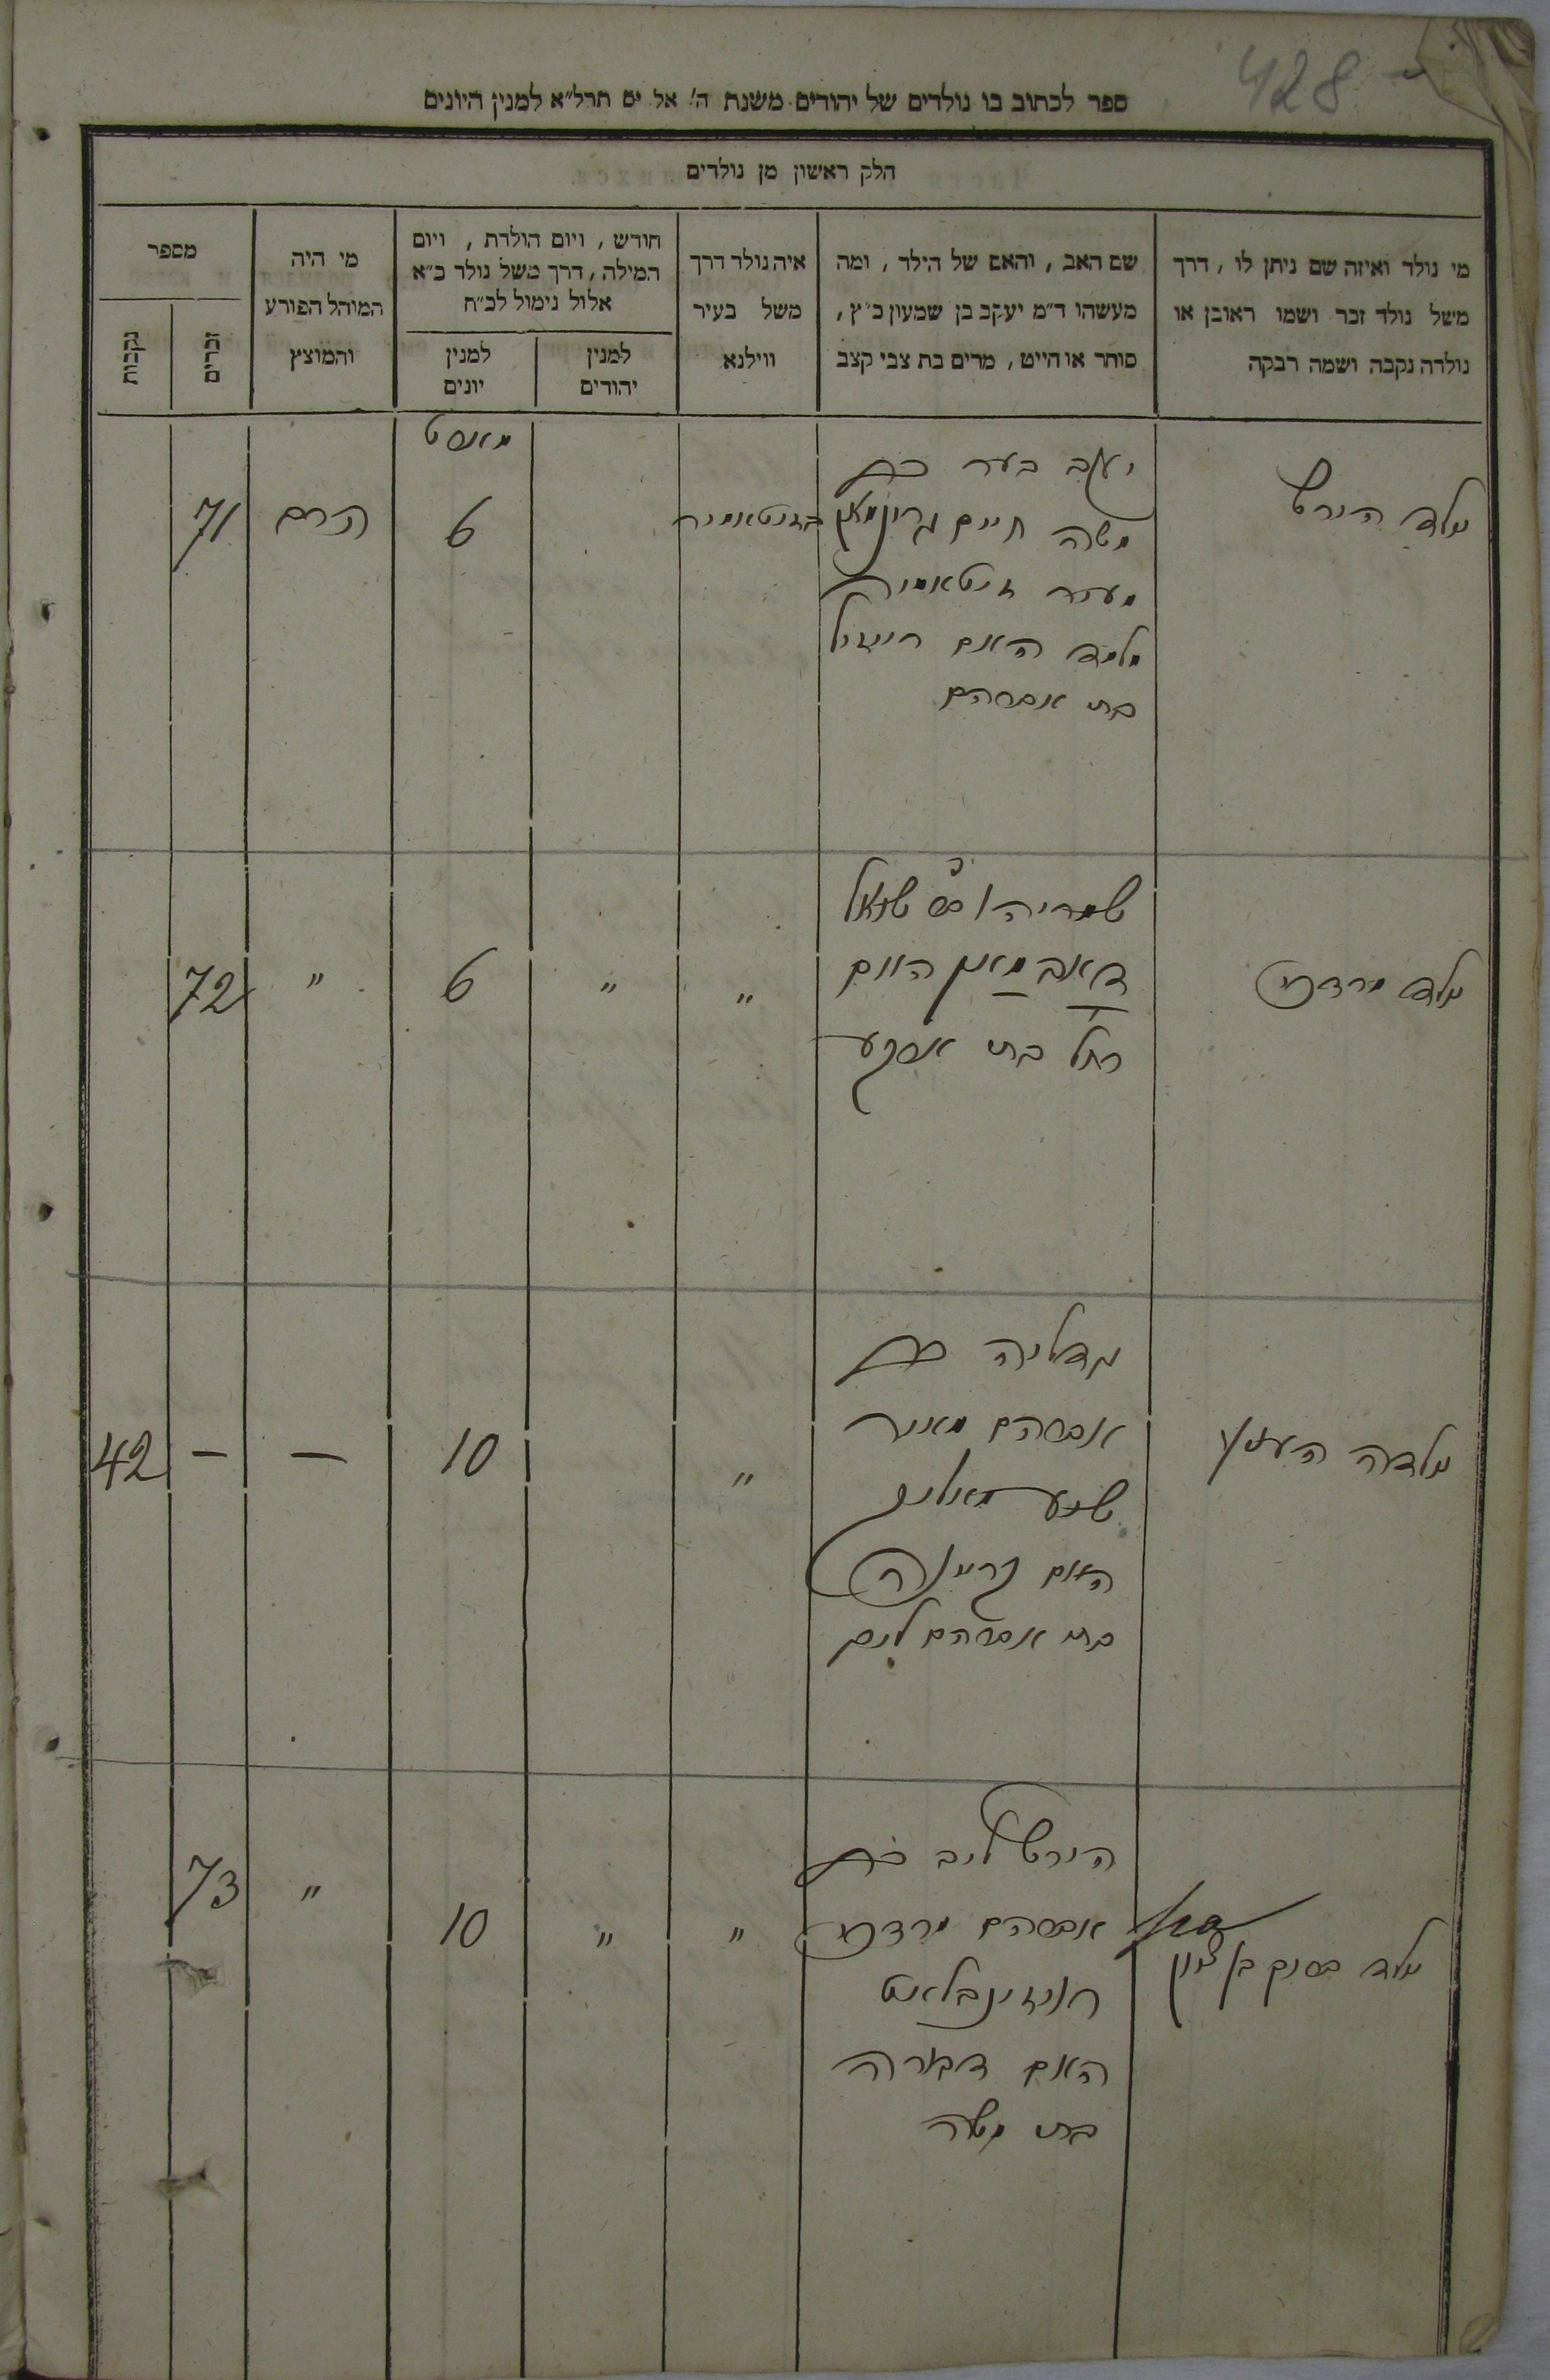 428
ספר לכתוב בו נולדים של יהודים משנת ה' אל ים תרל״א למנין היונים
הלק ראשון מן נולדים
מי נולד ואיזה שם ניתן לו, דרך
משל נולד זכר ושמו ראובן או
נולדה נקבה ושמה רבקה
שם האב, והאם של הילד, ומה
מעשהו ד״מ יעקב בן שמעון כ״ץ,
סוחר או הייט, מרים בת צבי קצב
איה נולד דרך
משל בעיר
ווילנא
חודש, ויום הולדת, ויום
המילה, דרך משל נולד כ״א
אלול נימול לכ״ח
למנין
יהודים
למנין
יונים
מי היה
המוהל הפורע
והמוצץ
מספר
זכרים
נקבות
נולד הירש
יעקב בער ב״ר
משה חיים גרינמאן
מעיר זיטאמיר
מלמד האם רייזיל
בת אברהם
בזיטאמיר
מאוסט
6
הרם
71
נולד מרדכי
שמריהו ב״ר שמואל
האם
רחל בת
"
"
6
"
72
נולדה
גדליה ב״ר
אברהם מאיר
האם
בת אברהם ליב
"
10
—
—
42
נולד בן ציון
הירש ליב ב״ר
אברהם מרדכי
רויזינבלאט
האם דבורה
בת משה
"
"
10
"
73